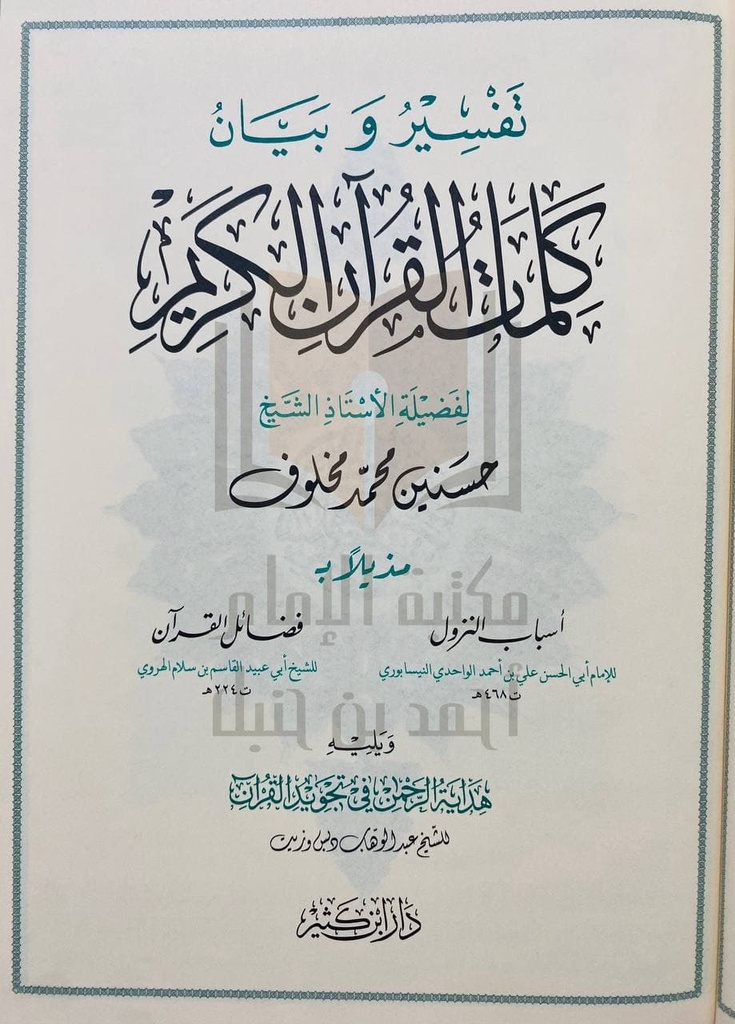 تَفْسِيْرُ وَ بَيَانُ
كَلِمَاتِ الْقُرْآنِ الْكَرِيْمِ
لِفَضِيْلَةِ الأُسْتَاذِ الشَّيْخ
حسنين محمّد مخلوف
مذيلاً بـ
أسباب النزول
للإمام أبي الحسن علي بن أحمد الواحدي النيسابوري
ت ٤٦٨ هـ
فضائل القرآن
للشيخ أبي عبيد القاسم بن سلام الهروي
ت ٢٢٤ هـ
وَيَلِيْهِ
هِدَايَةُ الرَّحْمٰنِ فِي تَجْوِيْدِ الْقُرْآنِ
للشيخ عبد الوهاب دبس وزيت
دَارُ ابْنِ كَثِيْر
مكتبة الإمام
أحمد بن حنبل